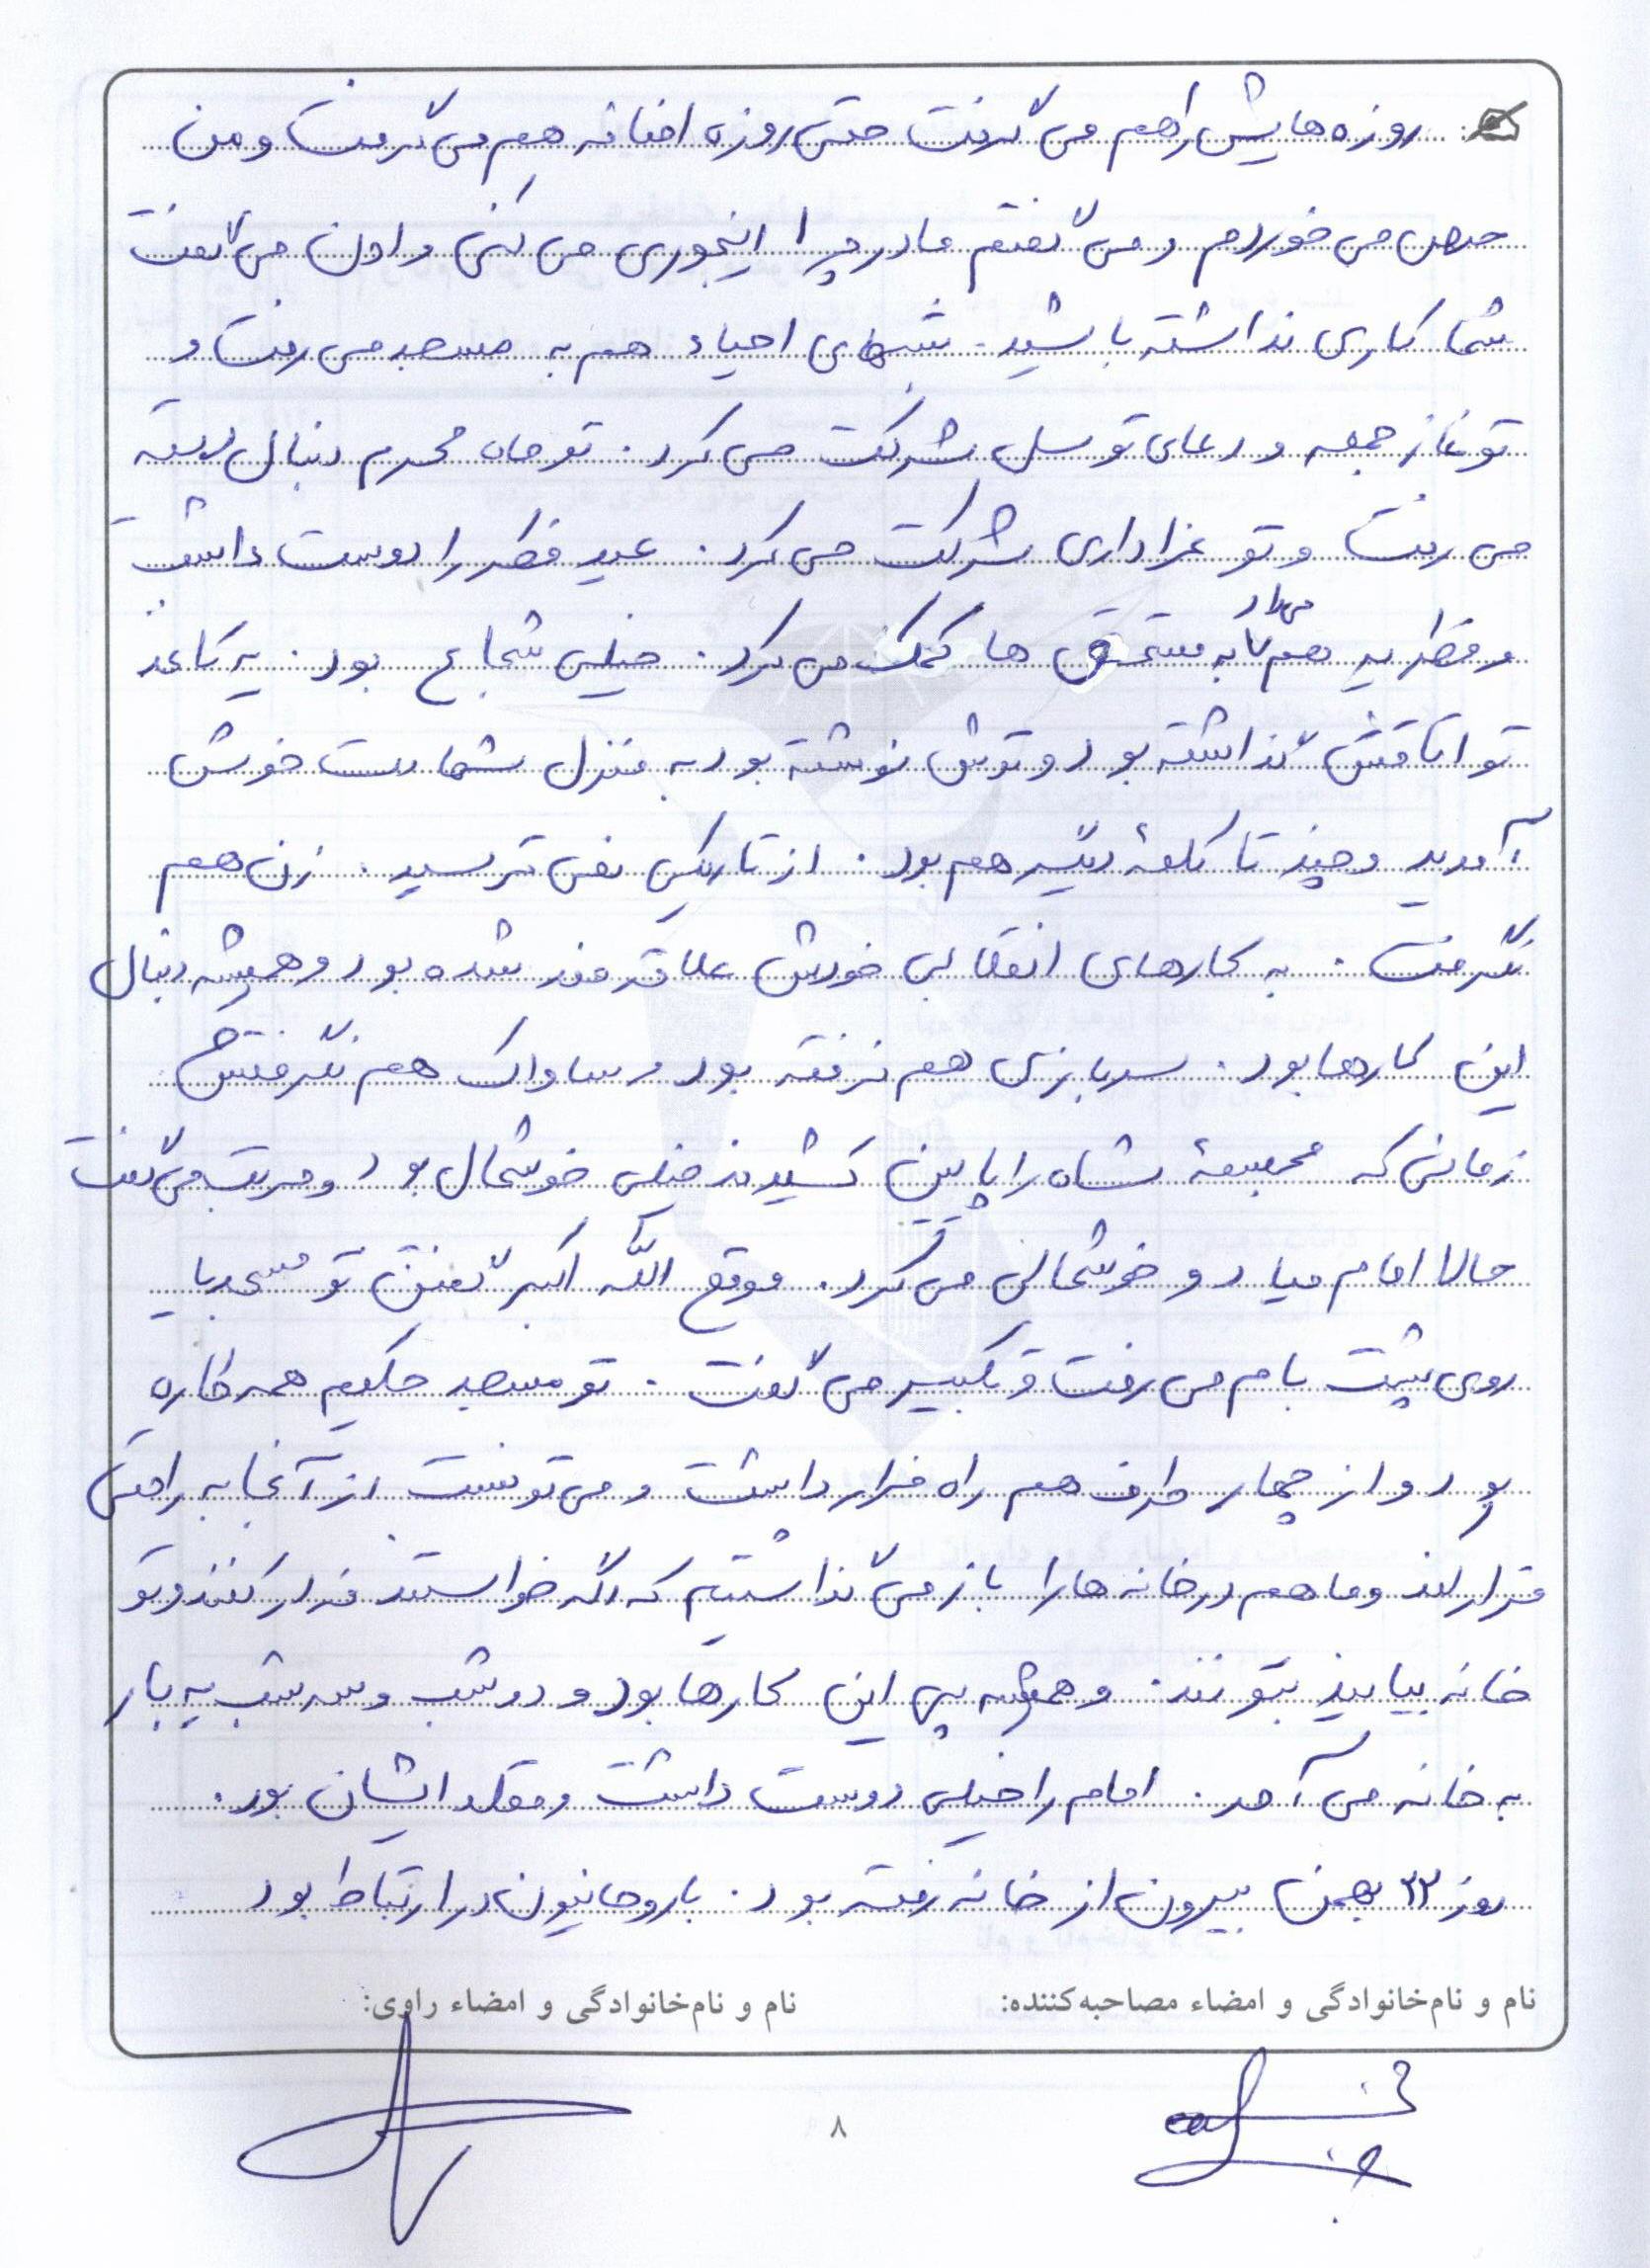 روزه هایش را هم می گرفت حتی روزه اضافه هم می گرفت و من
حرص می خوردم و می گفتم مادر چرا اینجوری می کنی و اون می گفت
شما کاری نداشته باشید. شبهای احیاء هم به مسجد می رفت و
تو نماز جمعه و دعای توسل شرکت می کرد. تو ماه محرم دنبال دسته
می رفت و تو عزاداری شرکت می کرد. عید فطر را دوست داشت
و فطریه هم می داد به مستحق ها کمک می کرد. خیلی شجاع بود. یه کاغذ
تو اتاقش گذاشته بود و توش نوشته بود به منزل شماست خوش
آمدید و چند تا کلمهٔ دیگر هم بود. از تاریکی نمی ترسید. زن هم
نگرفت. به کارهای انقلابی خودش علاقه مند شده بود و همیشه دنبال
این کارها بود. سربازی هم نرفته بود و ساواک هم نگرفتش
زمانی که مجسمهٔ شاه را پایین کشیدند خیلی خوشحال بود و مرتب می گفت
حالا امام میاد و خوشحالی می کرد. موقع الله اکبر گفتن تو مسجد یا
روی پشت بام می رفت و تکبیر می گفت. تو مسجد حکیم همه کاره
بود و از چهار طرف هم راه فرار داشت و می تونست از آنجا به راحتی
فرار کند و ما هم در خانه ها را باز می گذاشتیم که اگه خواستند فرار کنند و تو
خانه بیایند بتونند. و همیشه پی این کارها بود و دو شب و سه شب یه بار
به خانه می آمد. امام را خیلی دوست داشت و مقلد ایشان بود.
روز ۲۲ بهمن بیرون از خانه رفته بود. با روحانیون در ارتباط بود
نام و نام‌خانوادگی و امضاء مصاحبه‌کننده: نام و نام‌خانوادگی و امضاء راوی:
۸